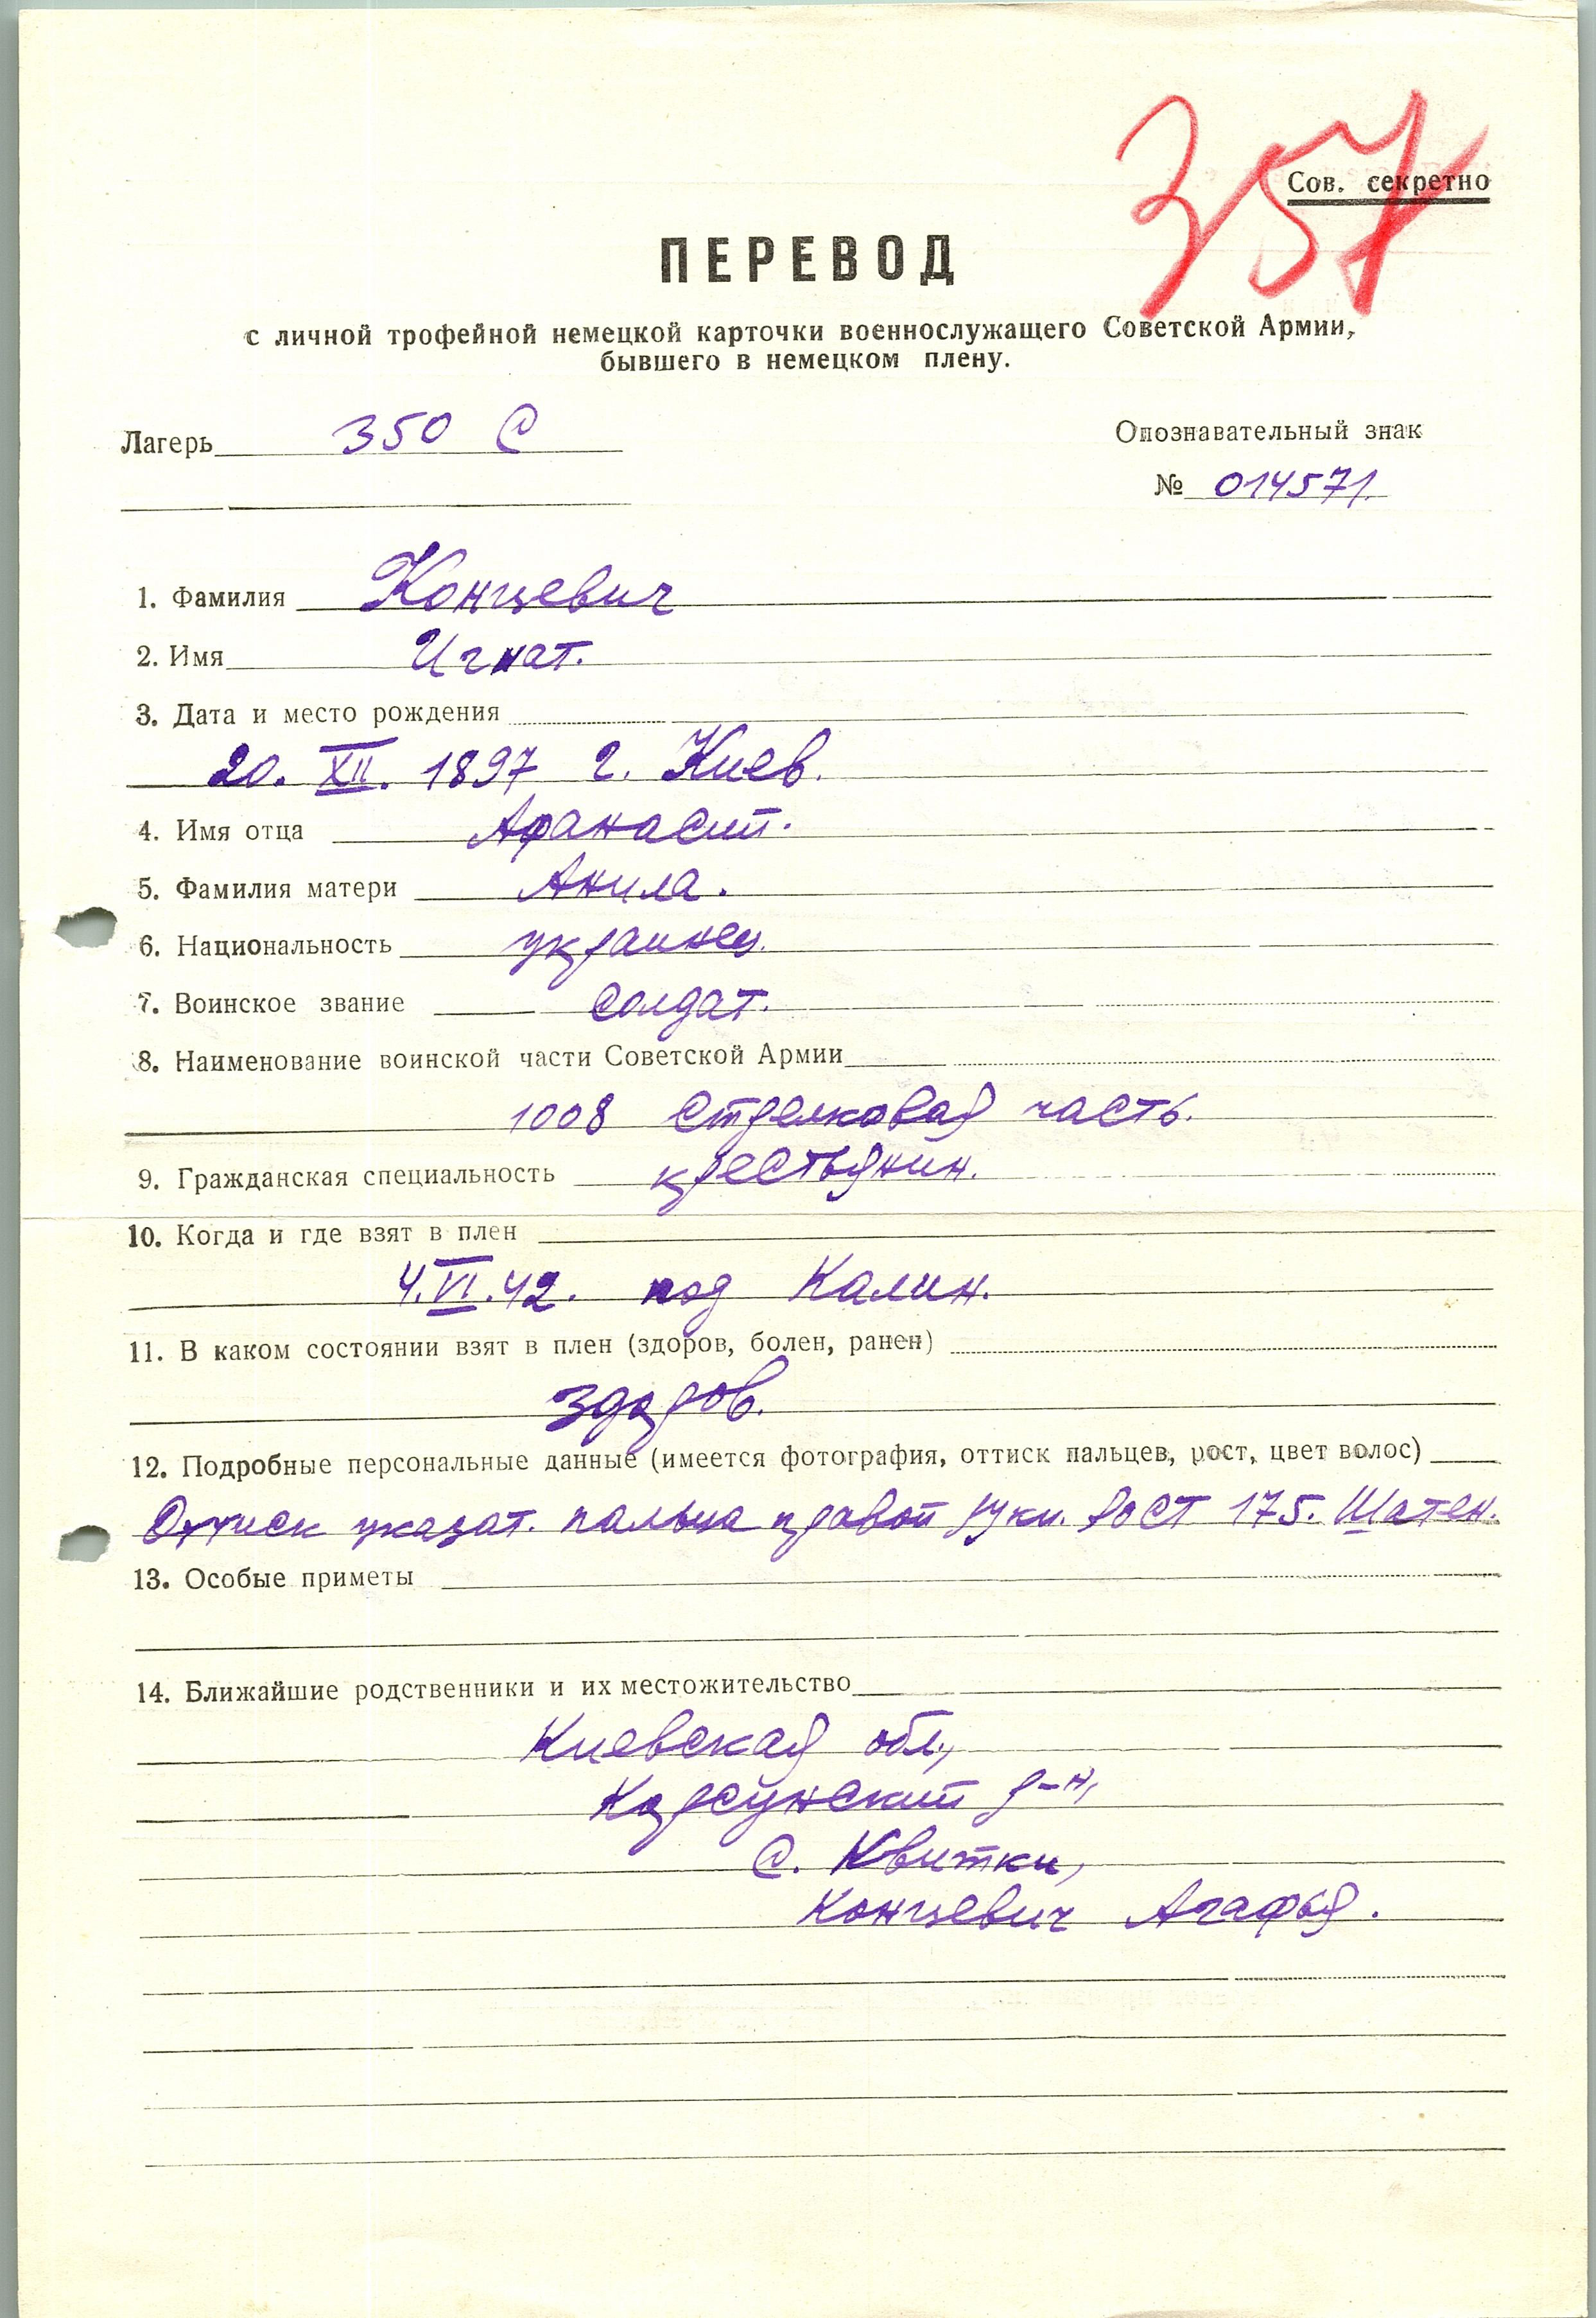 357
Сов. секретно
ПЕРЕВОД
с личной трофейной немецкой карточки военнослужащего Советской Армии,
бывшего в немецком плену.
Лагерь 350 С
Опознавательный знак
№ 014571.
1. Фамилия Концевич
2. Имя Игнат.
3. Дата и место рождения
20. XII. 1897 г. Киев.
4. Имя отца Афанасий.
5. Фамилия матери Анила.
6. Национальность украинец.
7. Воинское звание солдат.
8. Наименование воинской части Советской Армии
1008 стрелковая часть.
9. Гражданская специальность крестьянин.
10. Когда и где взят в плен
4.VI.42. под Калин.
11. В каком состоянии взят в плен (здоров, болен, ранен)
здоров.
12. Подробные персональные данные (имеется фотография, оттиск пальцев, рост, цвет волос)
Оттиск указат. пальца правой руки. Рост 175. Шатен.
13. Особые приметы
14. Ближайшие родственники и их местожительство
Киевская обл.,
Корсунский р-н,
С. Квитки,
Концевич Агафья.